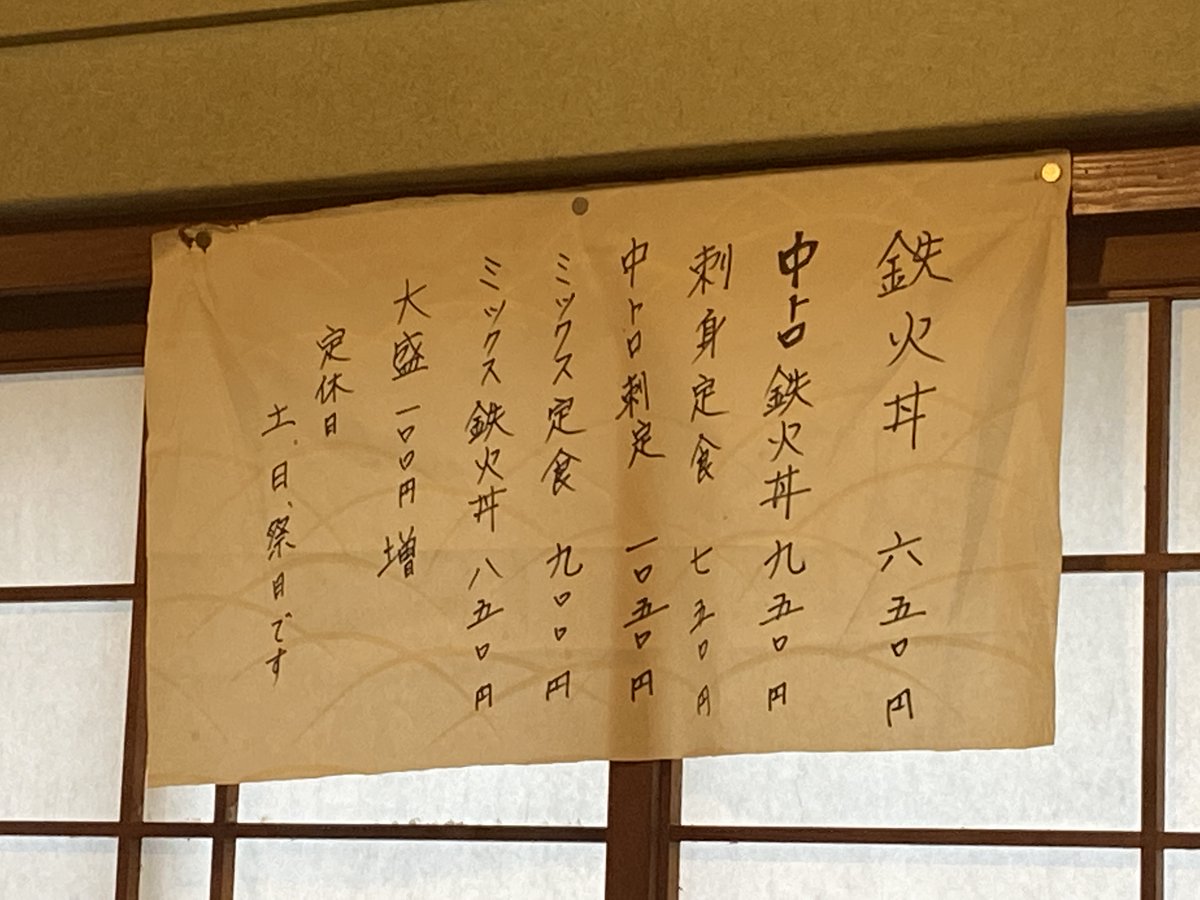 鉄火丼 六五〇円
中トロ鉄火丼 九五〇円
刺身定食 七五〇円
中トロ刺定 一〇五〇円
ミックス定食 九〇〇円
ミックス鉄火丼 八五〇円
大盛 一〇〇円 増
定休日
土、日、祭日です